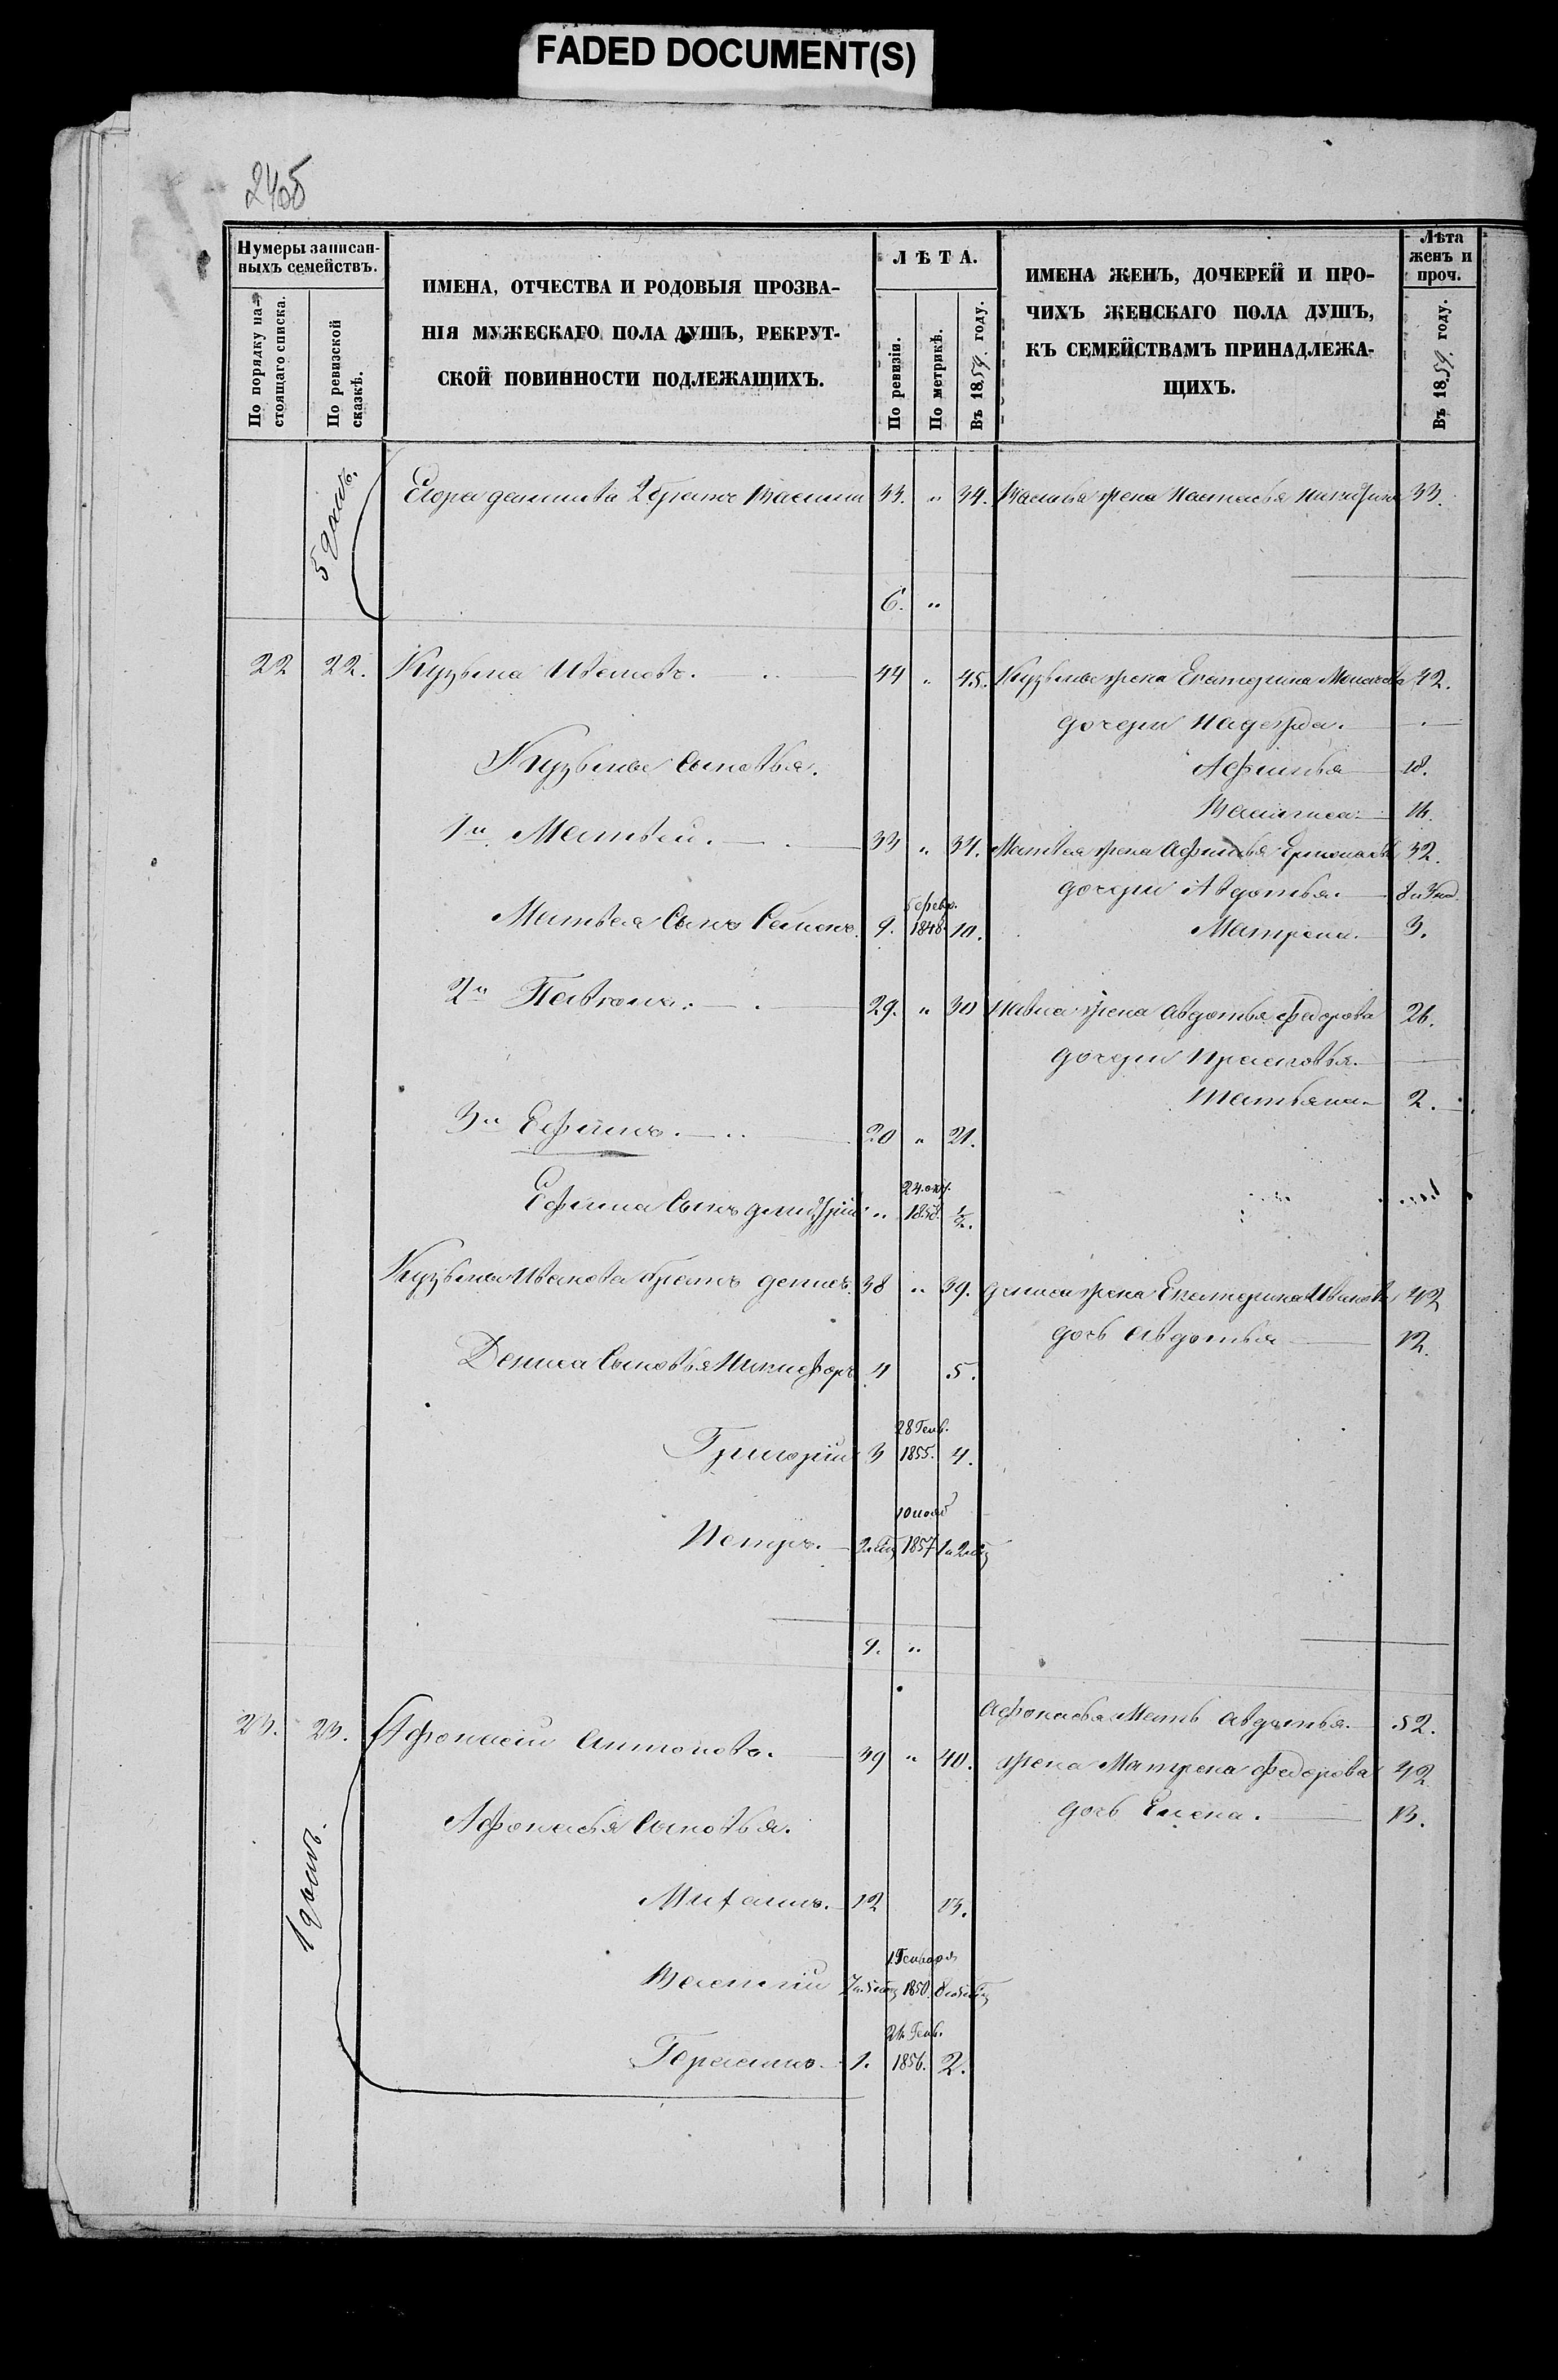 FADED DOCUMENT(S)
Нумеры записан-
ныхъ семействъ.
По порядку на-
стоящаго списка.
По ревизской
сказкѣ.
ИМЕНА, ОТЧЕСТВА И РОДОВЫЯ ПРОЗВА-
НІЯ МУЖЕСКАГО ПОЛА ДУШЪ, РЕКРУТ-
СКОЙ ПОВИННОСТИ ПОДЛЕЖАЩИХЪ.
ЛѢТА.
По ревизіи.
По метрикѣ.
Въ 1859 году.
ИМЕНА ЖЕНЪ, ДОЧЕРЕЙ И ПРО-
ЧИХЪ ЖЕНСКАГО ПОЛА ДУШЪ,
КЪ СЕМЕЙСТВАМЪ ПРИНАДЛЕЖА-
ЩИХЪ.
Лѣта
женъ и
проч.
Въ 1859 году.
Егора 2 братъ Василий 33. " 34. Василья жена Настасья 33.
6. "
22 22. Кузьма Ивановъ. 44 " 45. Кузьмы жена Екатерина 42.
дочери Надежда.
Кузьмы сыновья. Афимья 18.
Василиса
1й Матвей. 33 " 34. Матвея жена Афимья 32.
дочери Авдотья.
Матвея сынъ Семенъ. 9. 1848 10. Матрена. 3.
2й 29. " 30 Павла жена Авдотья Федорова 26.
дочери Прасковья.
Татьяна 2.
3й Ефимъ. 20 " 21.
Ефима сынъ Дмитрій " 24. окт. 1858. 1/2.
Кузьмы Иванова братъ Денисъ. 38 " 39. Дениса жена Екатерина Иванова 42
дочь Авдотья 12.
Дениса сыновья Никифоръ 4 5.
Григорій 3 28 Генв. 1855. 4.
Петръ. 1857
9. "
23. 23. Афонасій Антоновъ. 39 " 40. Афонасья мать Авдотья. 52.
жена Матрена Федорова 42
дочь Елена. 13.
Афонасья сыновья.
12 13.
Василій 1 Генваря 1850.
Герасимъ. 1. Генв. 1856. 2.